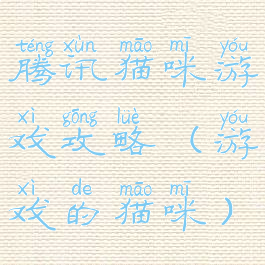 téng xùn māo mī yóu
腾讯猫咪游
xì gōng luè yóu
戏攻略（游
xì de māo mī
戏的猫咪）